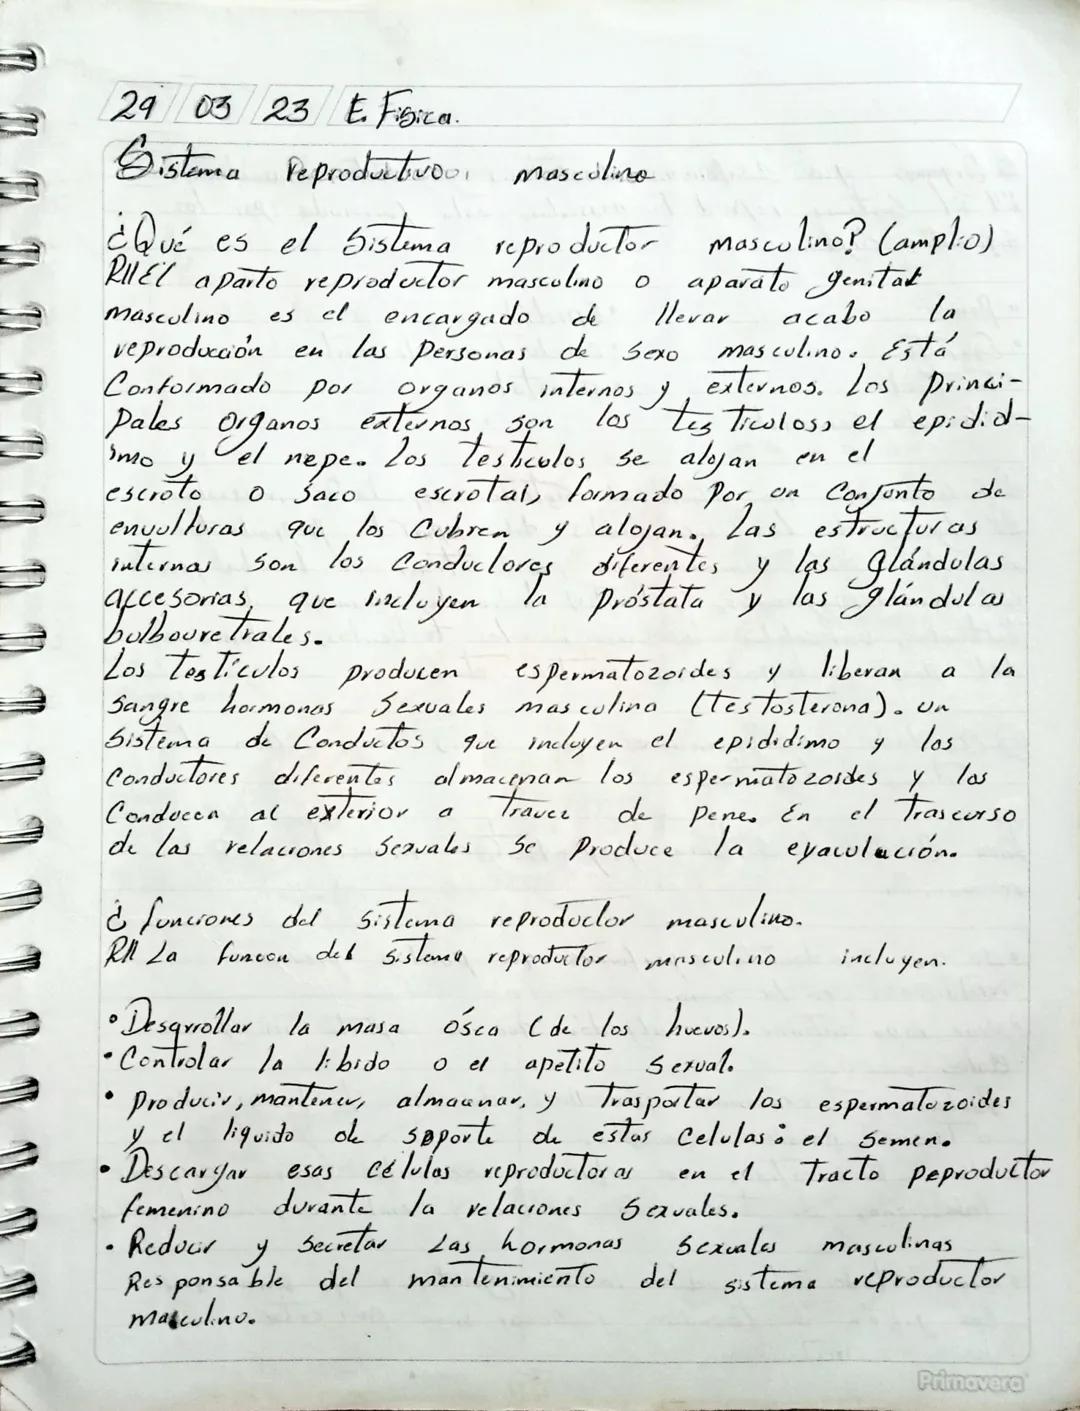 29 03 23 E. Fisica.
Sistema reproductivo masculino
¿Qué es el Sistema reproductor masculino? (amplio)
R// El aparto reproductor masculino o aparato genital
masculino es el encargado de llevar acabo la
reproducción en las Personas de Sexo masculino. Está
Conformado por organos internos y externos. Los princi-
pales organos externos son los testiculos, el epidid-
imo y el nepe. Los Testiculos se alojan en el
escroto o Saco escrotal, formado por un Conjunto de
envolturas que los Cubren y alojan. Las estructuras
internas Son los Conductores diferentes y las Glándulas
accesorias, que incluyen la Próstata y las glándulas
bulbouretrales.
Los testículos producen espermatozoides y liberan a la
Sangre hormonas Sexuales masculina (Testosterona). un
Sistema de Conductos que incluyen el epididimo y los
Conductores diferentes almacenan los espermatozoides y los
Conducen al exterior a travez de pene. En el trascurso
de las relaciones Sexuales Se Produce la eyaculación.
¿ funciones del Sistema reproductor masculino.
R// La funcon del Sistema reproductor masculino incluyen.
• Desarrollar la masa ósca (de los huevos).
• Controlar la libido o el apetito Sexual.
• Producir, mantener, almacenar, y Trasportar los espermatozoides
y el liquido de soporte de estas Celulas: el Semen.
• Descargar esas células reproductoras en el Tracto peproductor
femenino durante la relaciones Sexuales.
• Reducir y Secretar Las hormonas Sexuales masculinas
Responsable del mantenimiento del sistema reproductor
masculino.
Primavera